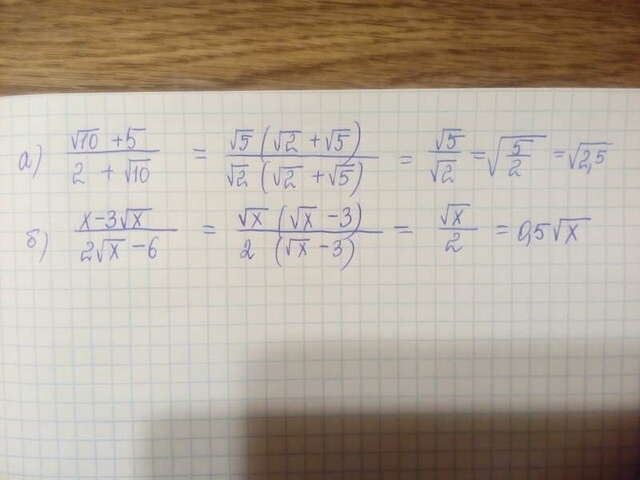 а) (√10 + 5)/(2 + √10) = √5 (√2 + √5)/√2 (√2 + √5) = √5/√2 = √(5/2) = √2,5
б) (x - 3√x)/(2√x - 6) = √x (√x - 3)/2 (√x - 3) = √x/2 = 0,5√x